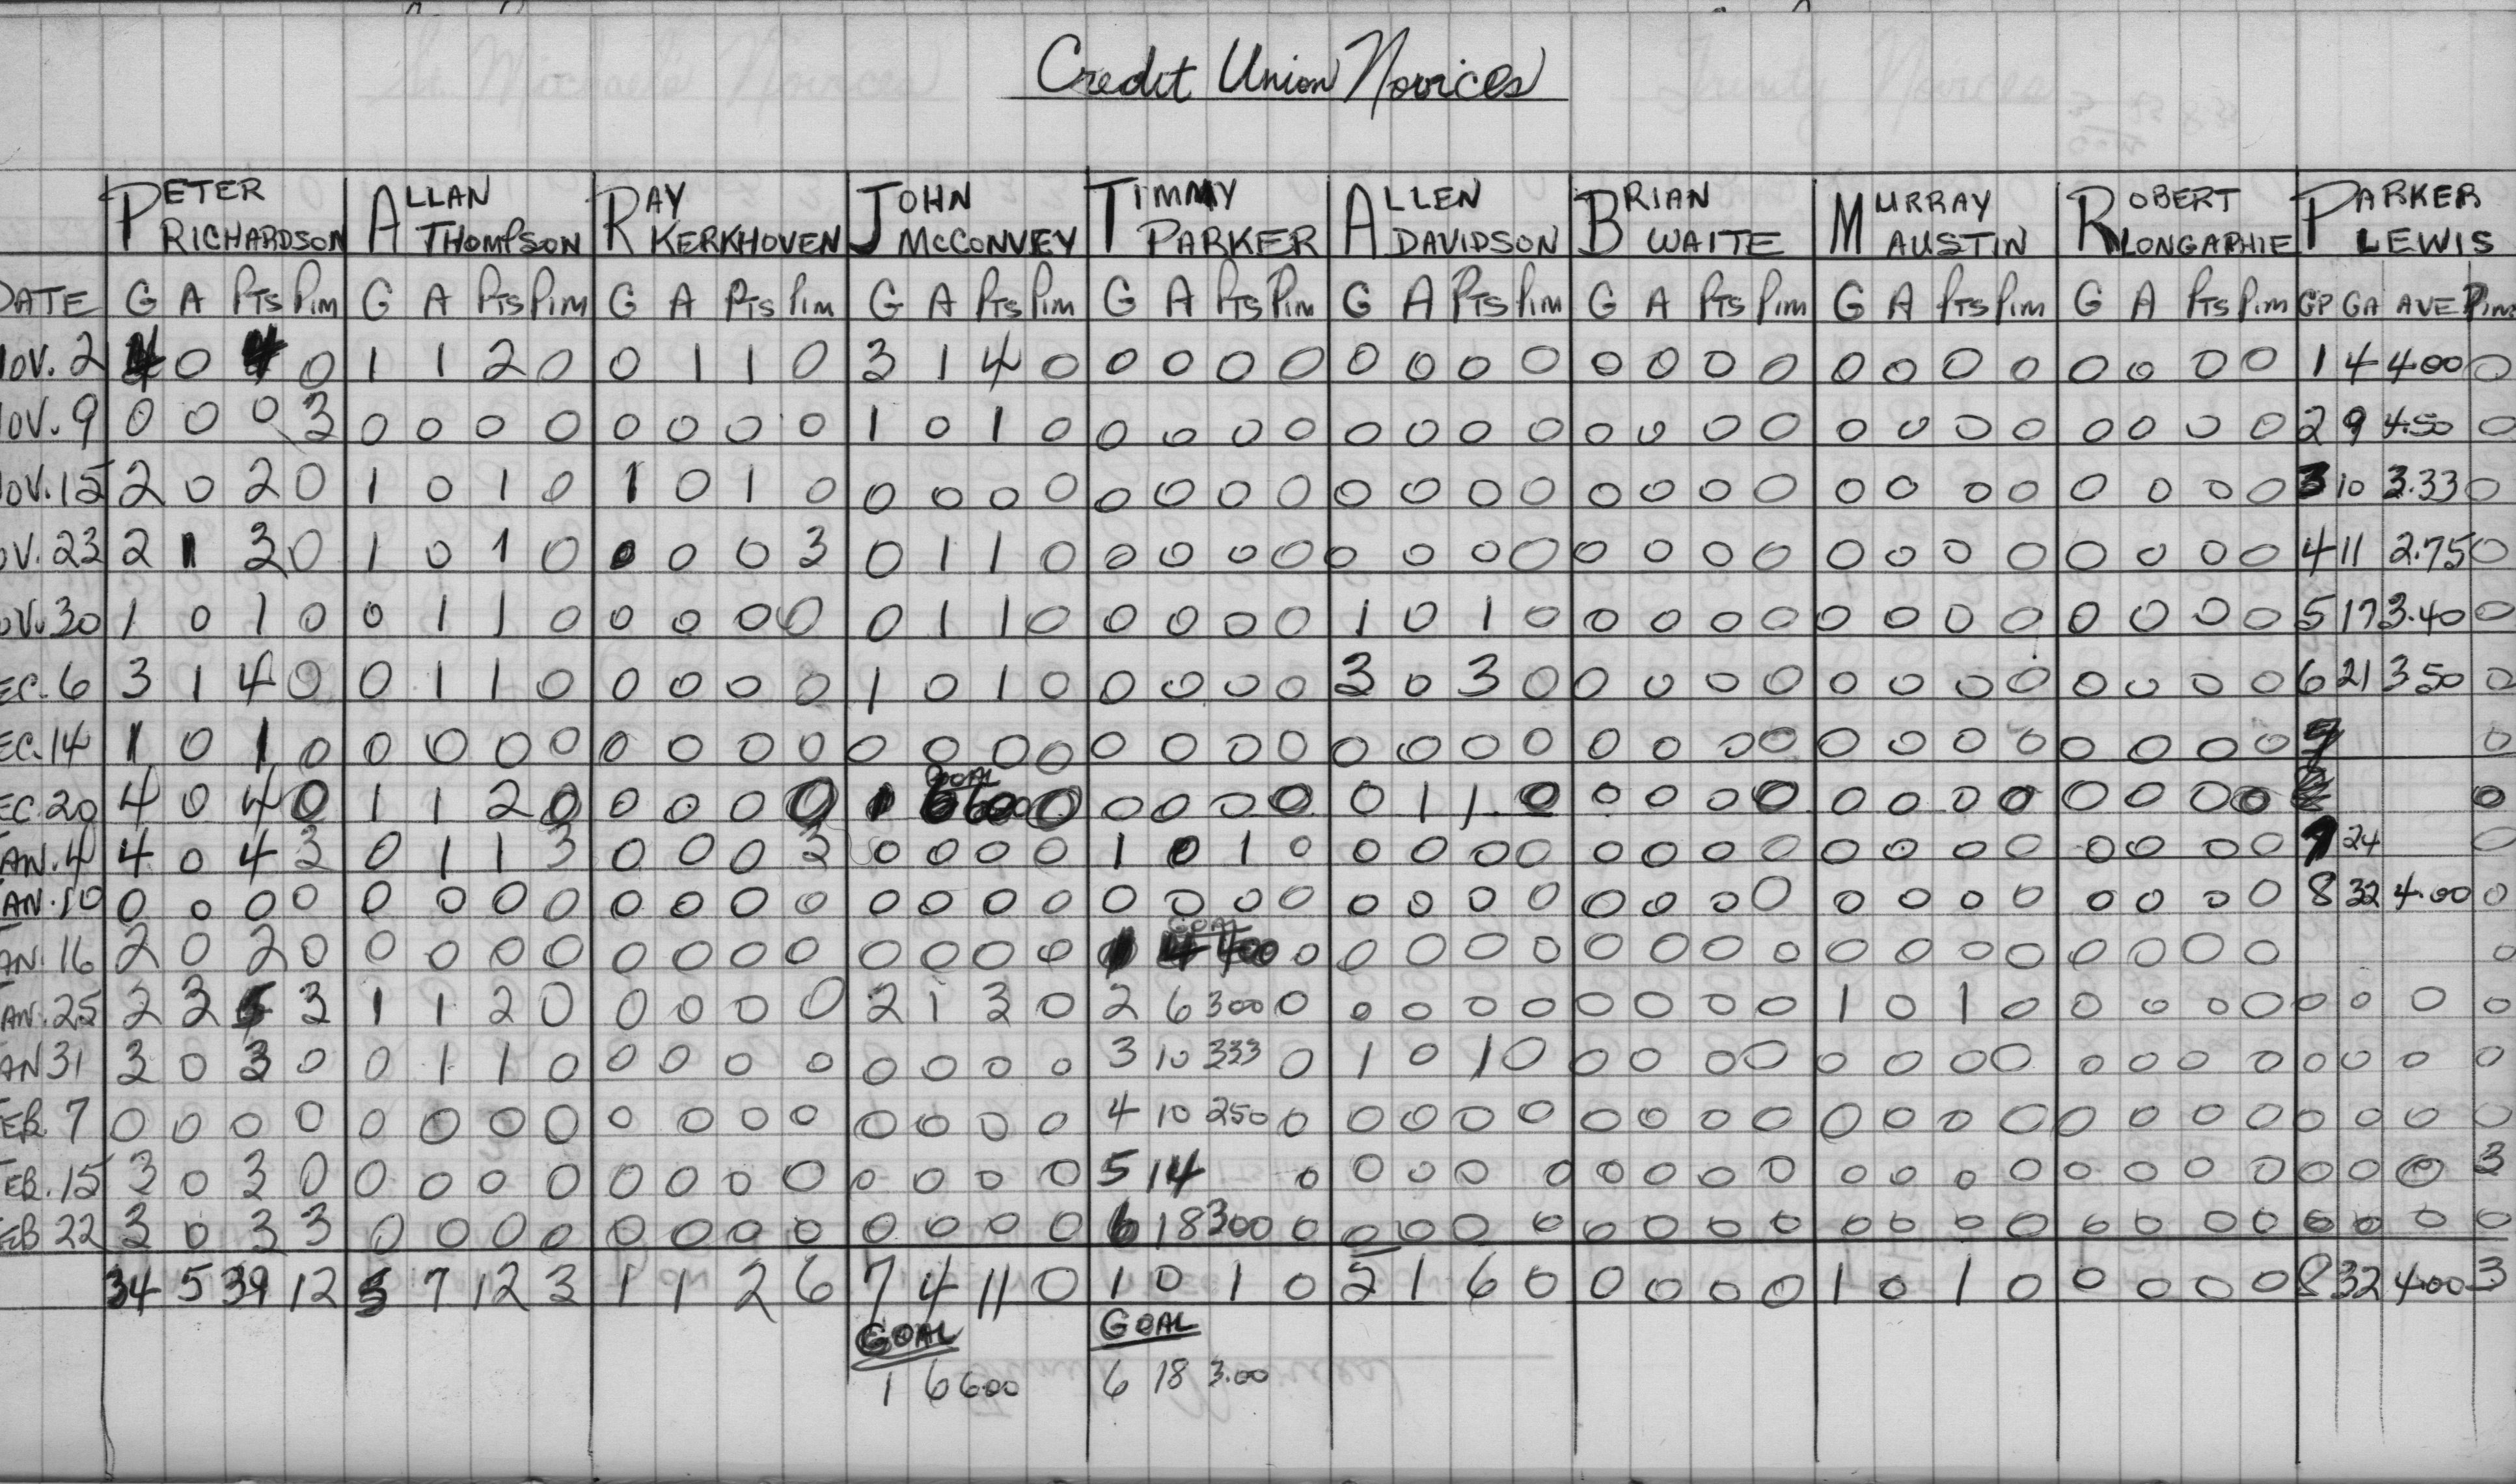 Credit Union Novices
PETER RICHARDSON ALLAN THOMPSON RAY KERKHOVEN JOHN McCONVEY TIMMY PARKER ALLEN DAVIDSON BRIAN WAITE MURRAY AUSTIN ROBERT LONGAPHIE PARKER LEWIS
DATE G A PTS PIM G A PTS PIM G A PTS PIM G A PTS PIM G A PTS PIM G A PTS PIM G A PTS PIM G A PTS PIM G A PTS PIM GP GA AVE PIM
NOV. 2 4 0 4 0 1 1 2 0 0 1 1 0 3 1 4 0 0 0 0 0 0 0 0 0 0 0 0 0 0 0 0 0 0 0 0 0 1 4 4.00 0
NOV. 9 0 0 0 3 0 0 0 0 0 0 0 0 1 0 1 0 0 0 0 0 0 0 0 0 0 0 0 0 0 0 0 0 0 0 0 0 2 9 4.50 0
NOV. 15 2 0 2 0 1 0 1 0 1 0 1 0 0 0 0 0 0 0 0 0 0 0 0 0 0 0 0 0 0 0 0 0 0 0 0 0 3 10 3.33 0
OV. 23 2 1 3 0 1 0 1 0 0 0 0 3 0 1 1 0 0 0 0 0 0 0 0 0 0 0 0 0 0 0 0 0 0 0 0 0 4 11 2.75 0
OV. 30 1 0 1 0 0 1 1 0 0 0 0 0 0 1 1 0 0 0 0 0 1 0 1 0 0 0 0 0 0 0 0 0 0 0 0 0 5 17 3.40 0
EC. 6 3 1 4 0 0 1 1 0 0 0 0 0 1 0 1 0 0 0 0 0 3 0 3 0 0 0 0 0 0 0 0 0 0 0 0 0 6 21 3.50 0
EC. 14 1 0 1 0 0 0 0 0 0 0 0 0 0 0 0 0 0 0 0 0 0 0 0 0 0 0 0 0 0 0 0 0 0 0 0 0 0
GOAL
EC. 20 4 0 4 0 1 1 2 0 0 0 0 0 1 6 600 0 0 0 0 0 0 1 1 0 0 0 0 0 0 0 0 0 0 0 0 0 0
JAN. 4 4 0 4 3 0 1 1 3 0 0 0 3 0 0 0 0 1 0 1 0 0 0 0 0 0 0 0 0 0 0 0 0 0 0 0 0 7 24 0
JAN. 10 0 0 0 0 0 0 0 0 0 0 0 0 0 0 0 0 0 0 0 0 0 0 0 0 0 0 0 0 0 0 0 0 0 0 0 0 8 32 4.00 0
GOAL
AN. 16 2 0 2 0 0 0 0 0 0 0 0 0 0 0 0 0 1 4 400 0 0 0 0 0 0 0 0 0 0 0 0 0 0 0 0 0 0
JAN. 25 2 3 5 3 1 1 2 0 0 0 0 0 2 1 3 0 2 6 300 0 0 0 0 0 0 0 0 0 1 0 1 0 0 0 0 0 0 0 0 0
JAN 31 3 0 3 0 0 1 1 0 0 0 0 0 0 0 0 0 3 10 333 0 1 0 1 0 0 0 0 0 0 0 0 0 0 0 0 0 0 0 0 0
FEB. 7 0 0 0 0 0 0 0 0 0 0 0 0 0 0 0 0 4 10 250 0 0 0 0 0 0 0 0 0 0 0 0 0 0 0 0 0 0 0 0 0
FEB. 15 3 0 3 0 0 0 0 0 0 0 0 0 0 0 0 0 5 14 0 0 0 0 0 0 0 0 0 0 0 0 0 0 0 0 0 0 0 0 3
FEB 22 3 0 3 3 0 0 0 0 0 0 0 0 0 0 0 0 6 18 300 0 0 0 0 0 0 0 0 0 0 0 0 0 0 0 0 0 0 0 0 0
34 5 39 12 5 7 12 3 1 1 2 6 7 4 11 0 1 0 1 0 5 1 6 0 0 0 0 0 1 0 1 0 0 0 0 0 8 32 4.00 3
GOAL GOAL
1 6 6.00 6 18 3.00